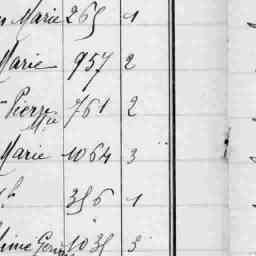 Marie 265 1
Marie 957 2
Pierre Mie 761 2
Marie 1064 3
356 1
1035 3